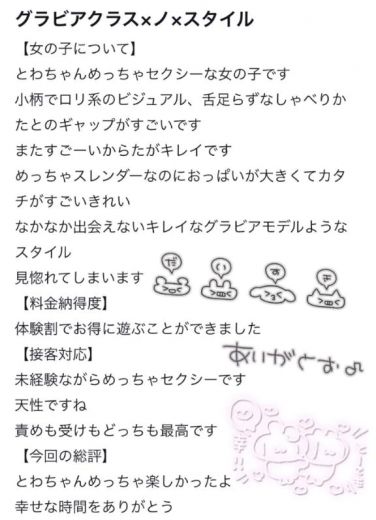 グラビアクラス×ノ×スタイル
【女の子について】
とわちゃんめっちゃセクシーな女の子です
小柄でロリ系のビジュアル、舌足らずなしゃべりか
たとのギャップがすごいです
またすごーいからたがキレイです
めっちゃスレンダーなのにおっぱいが大きくてカタ
チがすごいきれい
なかなか出会えないキレイなグラビアモデルような
スタイル
見惚れてしまいます
だ い す き
【料金納得度】
体験割でお得に遊ぶことができました
ありがとお♪
【接客対応】
未経験ながらめっちゃセクシーです
天性ですね
責めも受けもどっちも最高です
【今回の総評】
とわちゃんめっちゃ楽しかったよ
幸せな時間をありがとう